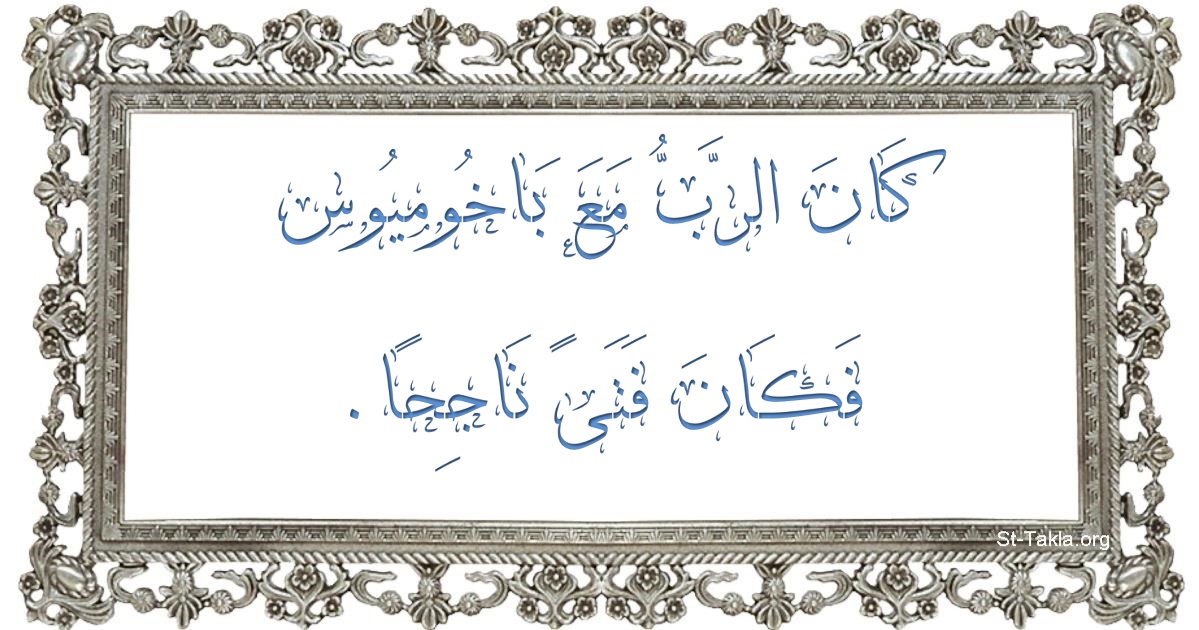 كَانَ الرَّبُّ مَعَ بَاخُومِيُوس
فَكَانَ فَتَىً نَاجِحًا .
St-Takla.org